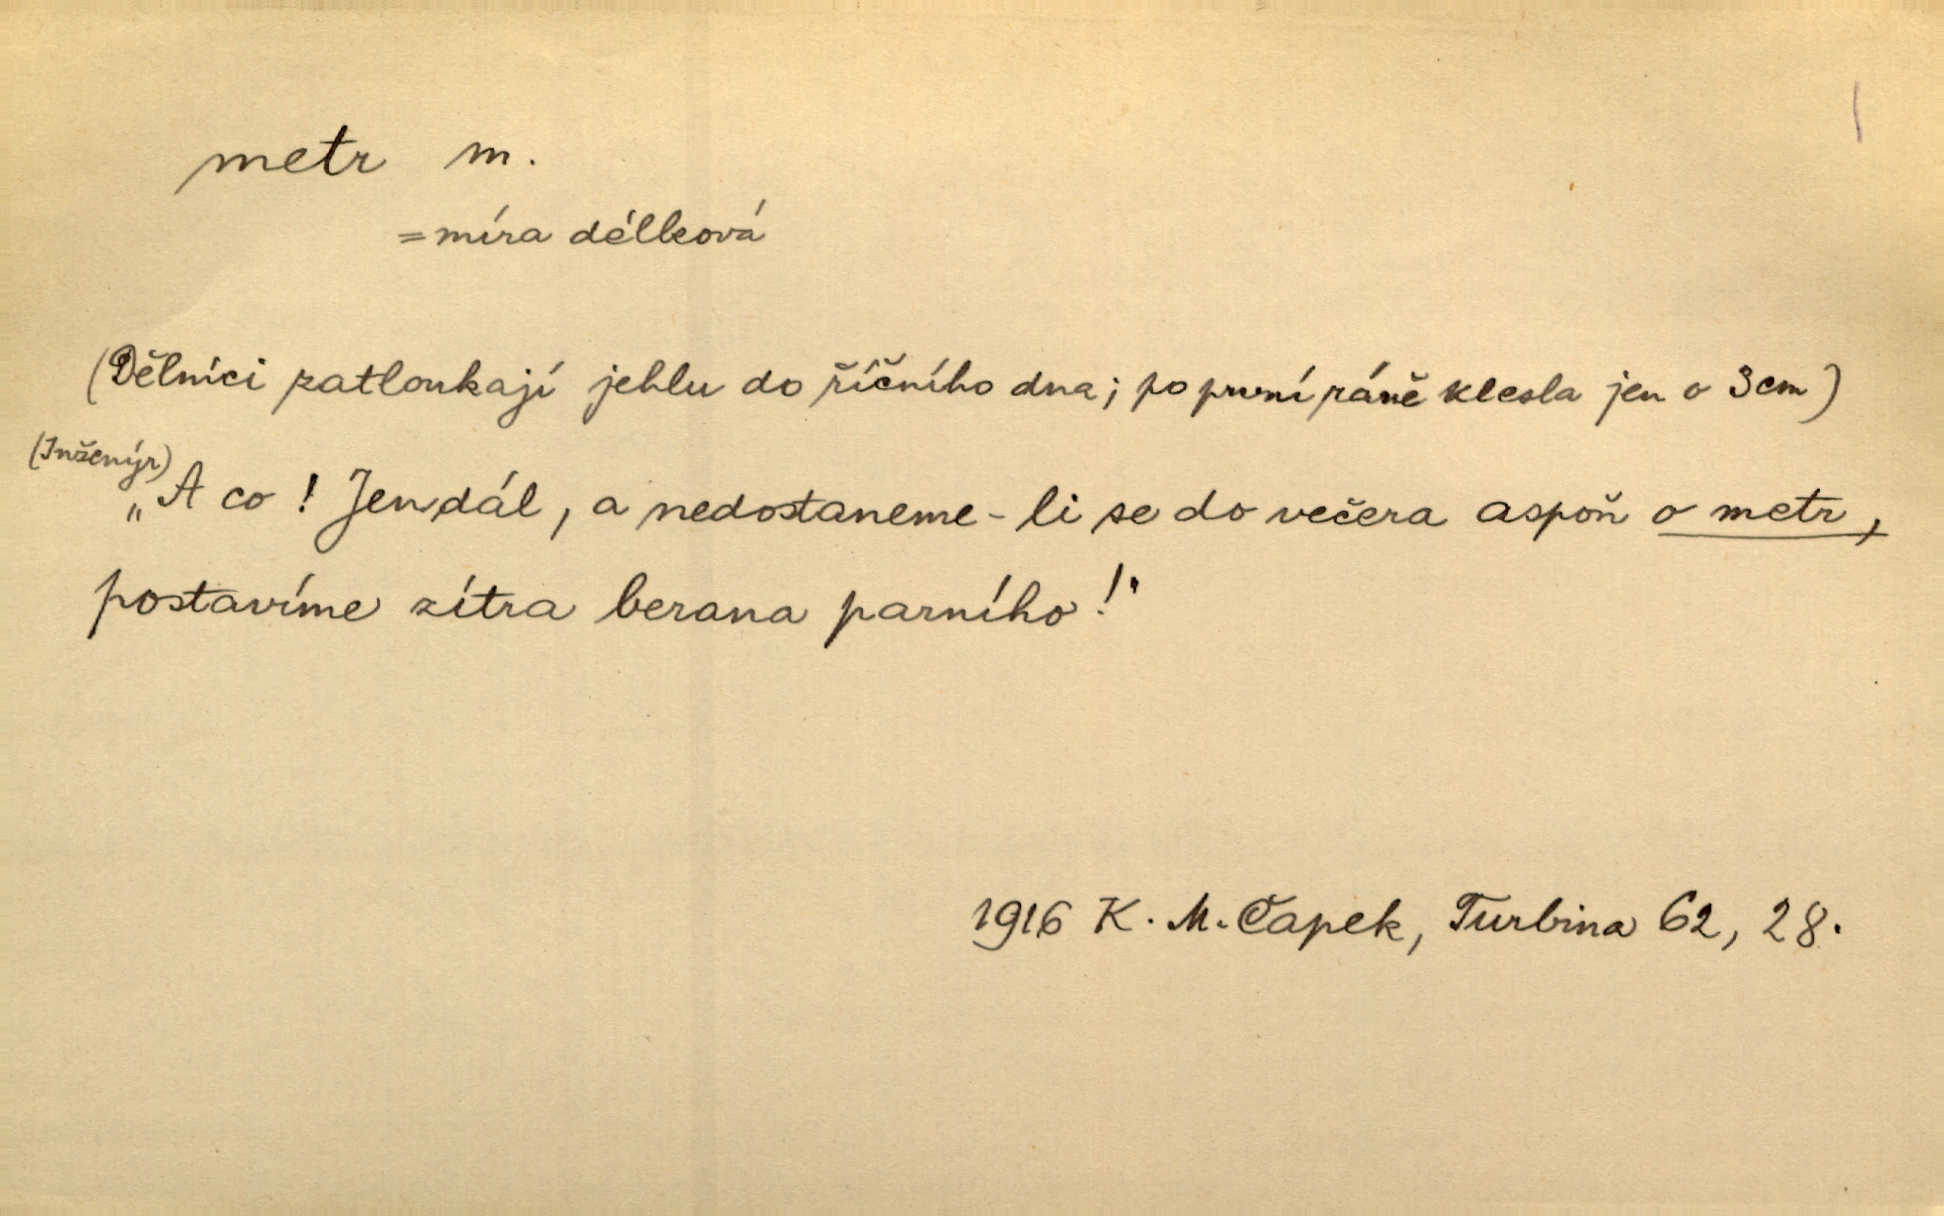 metr m.
=míra délková
(Dělníci zatloukají jehlu do říčního dna; po první ráně klesla jen o 3cm)
(Inženýr)
„A co! Jen dál, a nedostaneme-li se do večera aspoň o metr,
postavíme zítra berana parního!"
1916 K. M. Čapek, Turbina 62, 28.